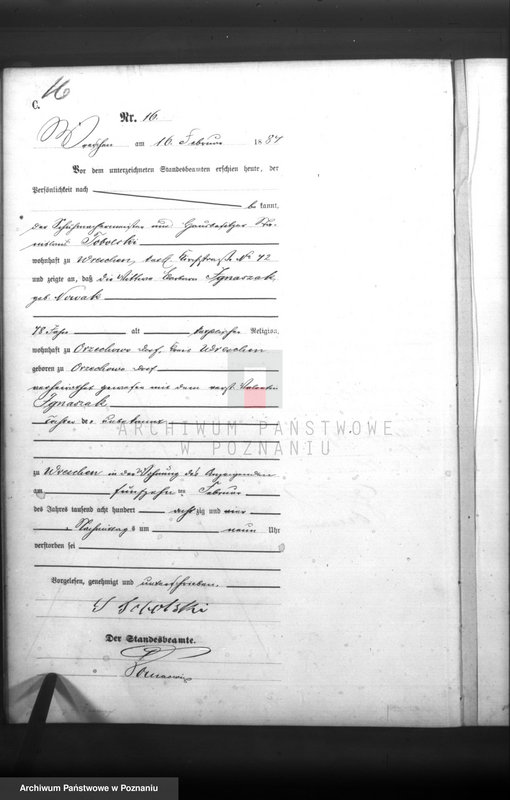 16
C.
Nr. 16.
Wreschen am 16. Februar 1884
Vor dem unterzeichneten Standesbeamten erschien heute, der
Persönlichkeit nach
be kannt,
der Schuhmachermeister und Hausbesitzer Sta-
nislaus Sobolski
wohnhaft zu Wreschen, No 42
und zeigte an, daß die Wittwe Barbara Ignaszak,
geb. Nowak
78 Jahr alt katholischer Religion,
wohnhaft zu Orzechowo Dorf, Kreis Wreschen
geboren zu Orzechowo Dorf
verheirathet gewesen mit dem verst. Valentin
Ignaszak,
Tochter der unbekannt
ARCHIWUM PAŃSTWOWE
W POZNANIU
zu Wreschen in der Wohnung des Anzeigenden
am fünfzehn ten Februar
des Jahres tausend acht hundert acht zig und vier
Nachmittags um neun Uhr
verstorben sei
Vorgelesen, genehmigt und unterschrieben.
S Sobolski
Der Standesbeamte.
Archiwum Państwowe w Poznaniu